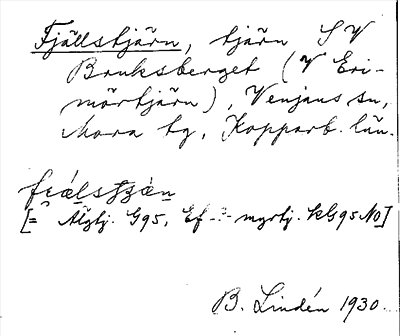 Fjällstjärn, tjärn S V
Bruksberget (V Eri-
mörtjärn), Venjans sn,
Mora tg, Kopparb. län.
[= Älgtj. G95, Ef - myrtj. kG95 NO]
B. Lindén 1930.